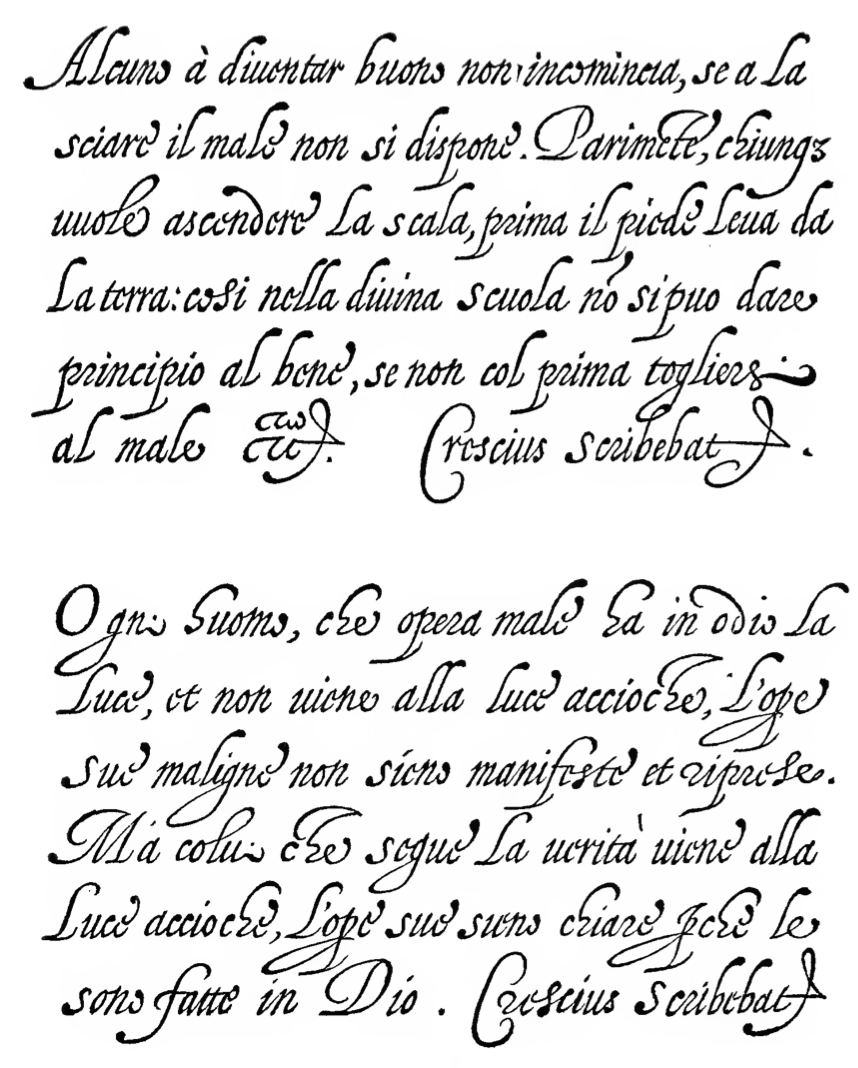 Alcuno à diuentar buono non incomincia, se a la
sciare il male non si dispone. Parimẽte, chiunqз
uuole ascendere la scala, prima il piede leua da
la terra: cosi nella diuina scuola nõ si puo dare
principio al bene, se non col prima togliersi
al male
Crescius Scribebat.
Ogni huomo, che opera male ha in odio la
luce, et non uiene alla luce accioche, l'ope
sue maligne non sieno manifeste et riprese.
Ma colui che segue la uerità uiene alla
luce accioche, l'ope sue sieno chiare ꝑche le
sono fatte in Dio. Crescius Scribebat